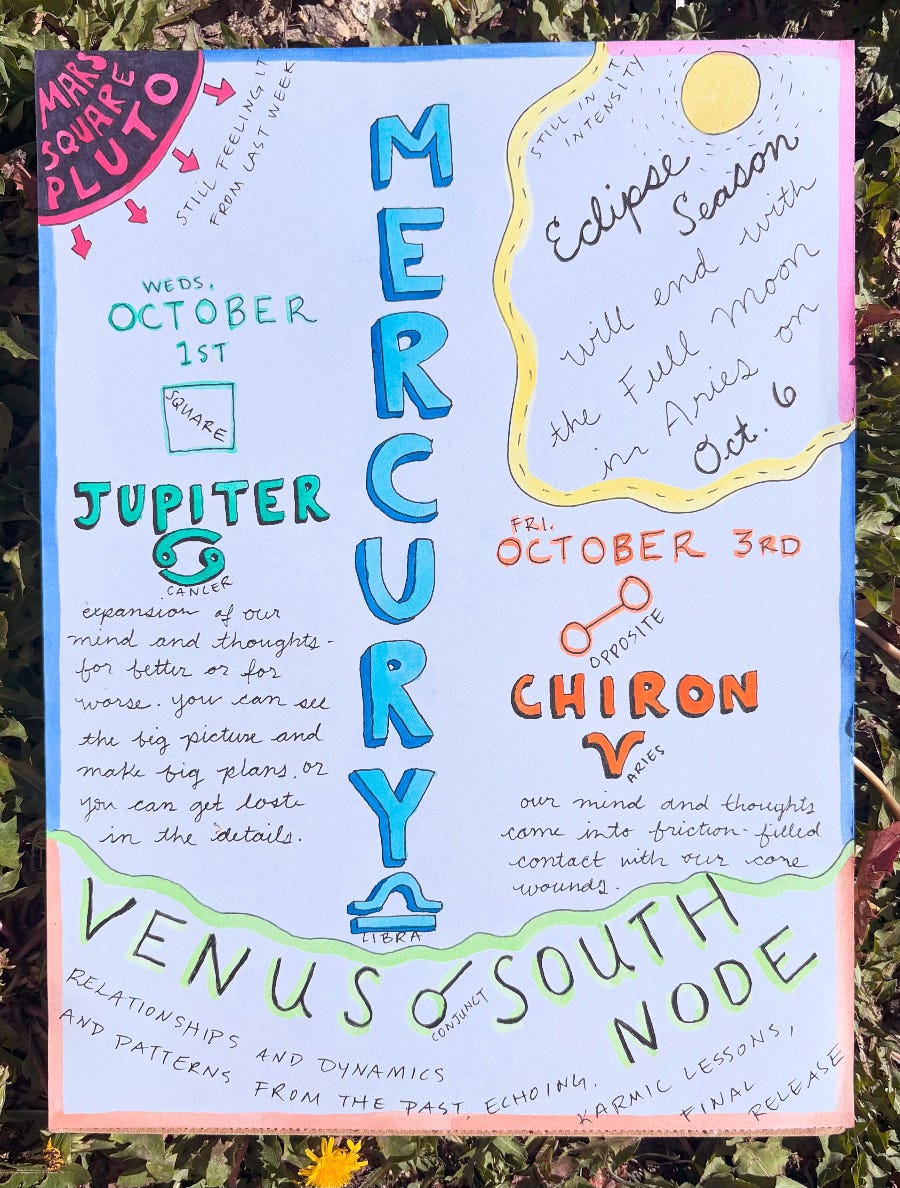 MARS
SQUARE
PLUTO
STILL FEELING IT
FROM LAST WEEK
MERCURY
LIBRA
STILL IN IT
INTENSITY
Eclipse
Season
will end with
the Full Moon
in Aries on
Oct. 6
WEDS.
OCTOBER
1ST
SQUARE
JUPITER
CANCER
expansion of our
mind and thoughts -
for better or for
worse. you can see
the big picture and
make big plans, or
you can get lost
in the details.
FRI.
OCTOBER 3RD
OPPOSITE
CHIRON
ARIES
our mind and thoughts
come into friction-filled
contact with our core
wounds.
VENUS ☌ SOUTH
CONJUNCT
NODE
RELATIONSHIPS AND DYNAMICS
AND PATTERNS FROM THE PAST, ECHOING.
KARMIC LESSONS,
FINAL RELEASE